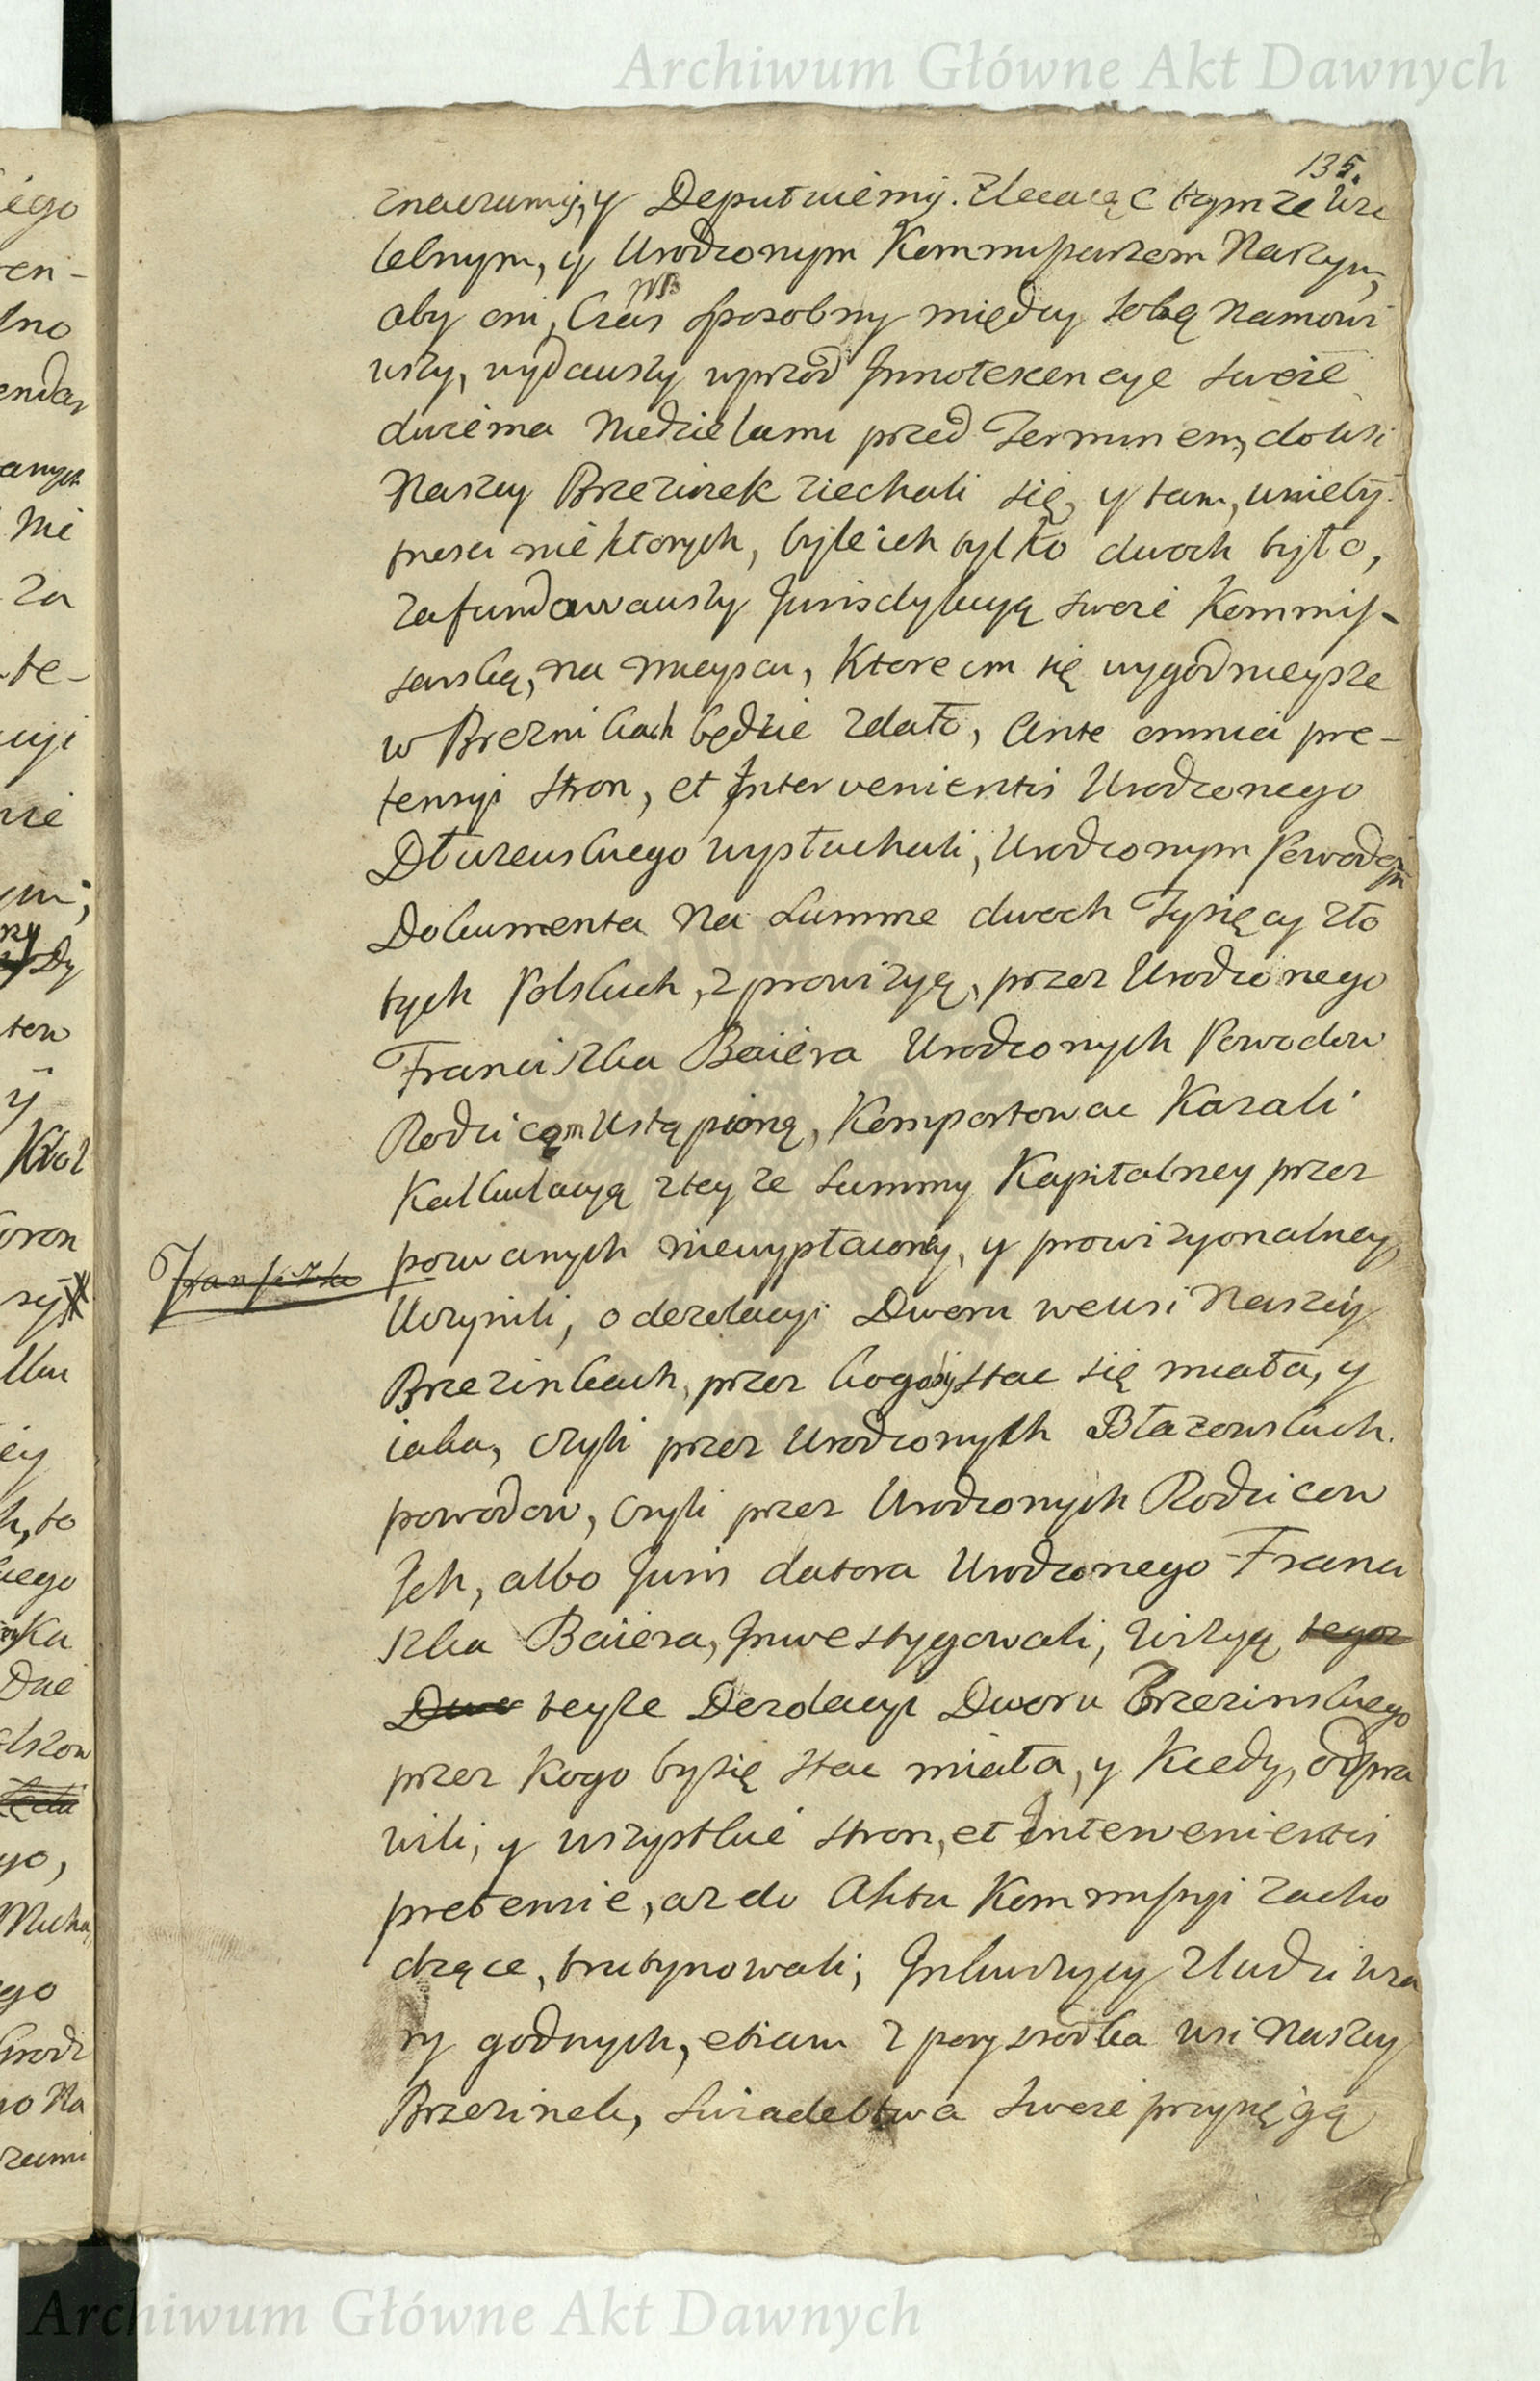 Archiwum Główne Akt Dawnych
135.
znaczamy, y Deputuiemy. Zlecaiąc tymże Urz
telnym, y Urodzonym Kommissarzom Naszym,
aby oni, Czas sposobny między sobą namowi
wszy, wydawszy wprzod Innotescencye swoie
dwiema Niedzielami przed Terminem, do Wsi
Naszey Brzezinek ziechali się, y tam, w nieby-
tnosci niektorych, byle ich tylko dwoch było,
zafundowawszy Jurisdykcyą swoie Kommis-
sarską, na mieyscu, Ktore im się wygodnieysze
w Brezni kach będzie zdało, Ante omnia pre-
tensyi stron, et Intervenientis Urodzonego
Dłużewskiego wysłuchali, Urodzonym Powodom
Dokumenta na Summe dwoch Tysięcy zło
tych Polskich, z prowizyą, przez Urodzonego
Franciszka Baiera Urodzonych Powodow
Rodzicom Ustąpioną, Komportowac Kazali
Kalkulacyą z teyże Summy Kapitalney przez
pozwanych niewypłaconey, y prowizyonalney
Uczynili, o dezolacyi Dworu we Wsi Naszey
Brzezinkach, przez kogoby stac się miała, y
iaka, czyli przez Urodzonych Błazowskich
powodow, czyli przez Urodzonych Rodzicow
Ich, albo Juris datora Urodzonego Franci
szka Baiera, Inwestygowali, Wizyą tegoz
Dwo teyże Dezolacyi Dworu Brzezinskiego
przez Kogo by się stac miała, y Kiedy, odpra
wili, y wszystkie stron, et Intervenientis
pretensie, az do Aktu Kommissyi zacho
dzące, trutynowali, Inkwizycy z ludzi wia
ry godnych, etiam z posrzodka wsi Naszey
Brzezinek, swiadectwa swoie przysięgą
Archiwum Główne Akt Dawnych